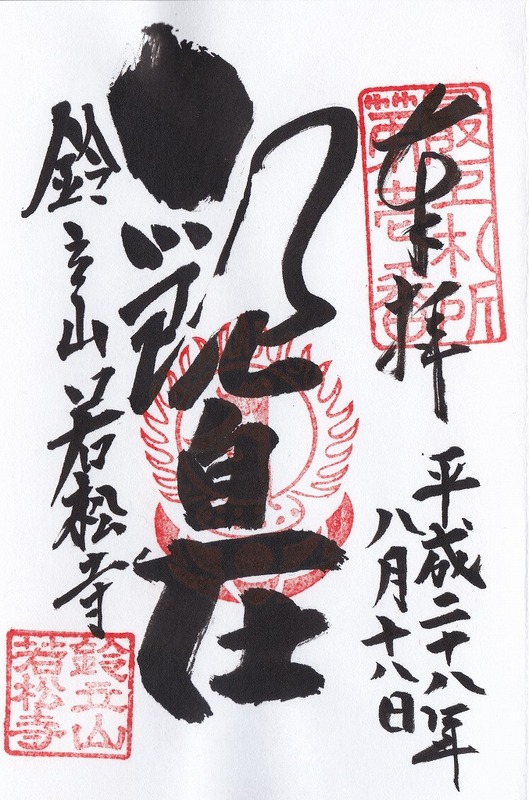 奉拝
最上札所
第壱番
平成二十八年
八月十八日
観自在
鈴立山若松寺
鈴立山
若松寺